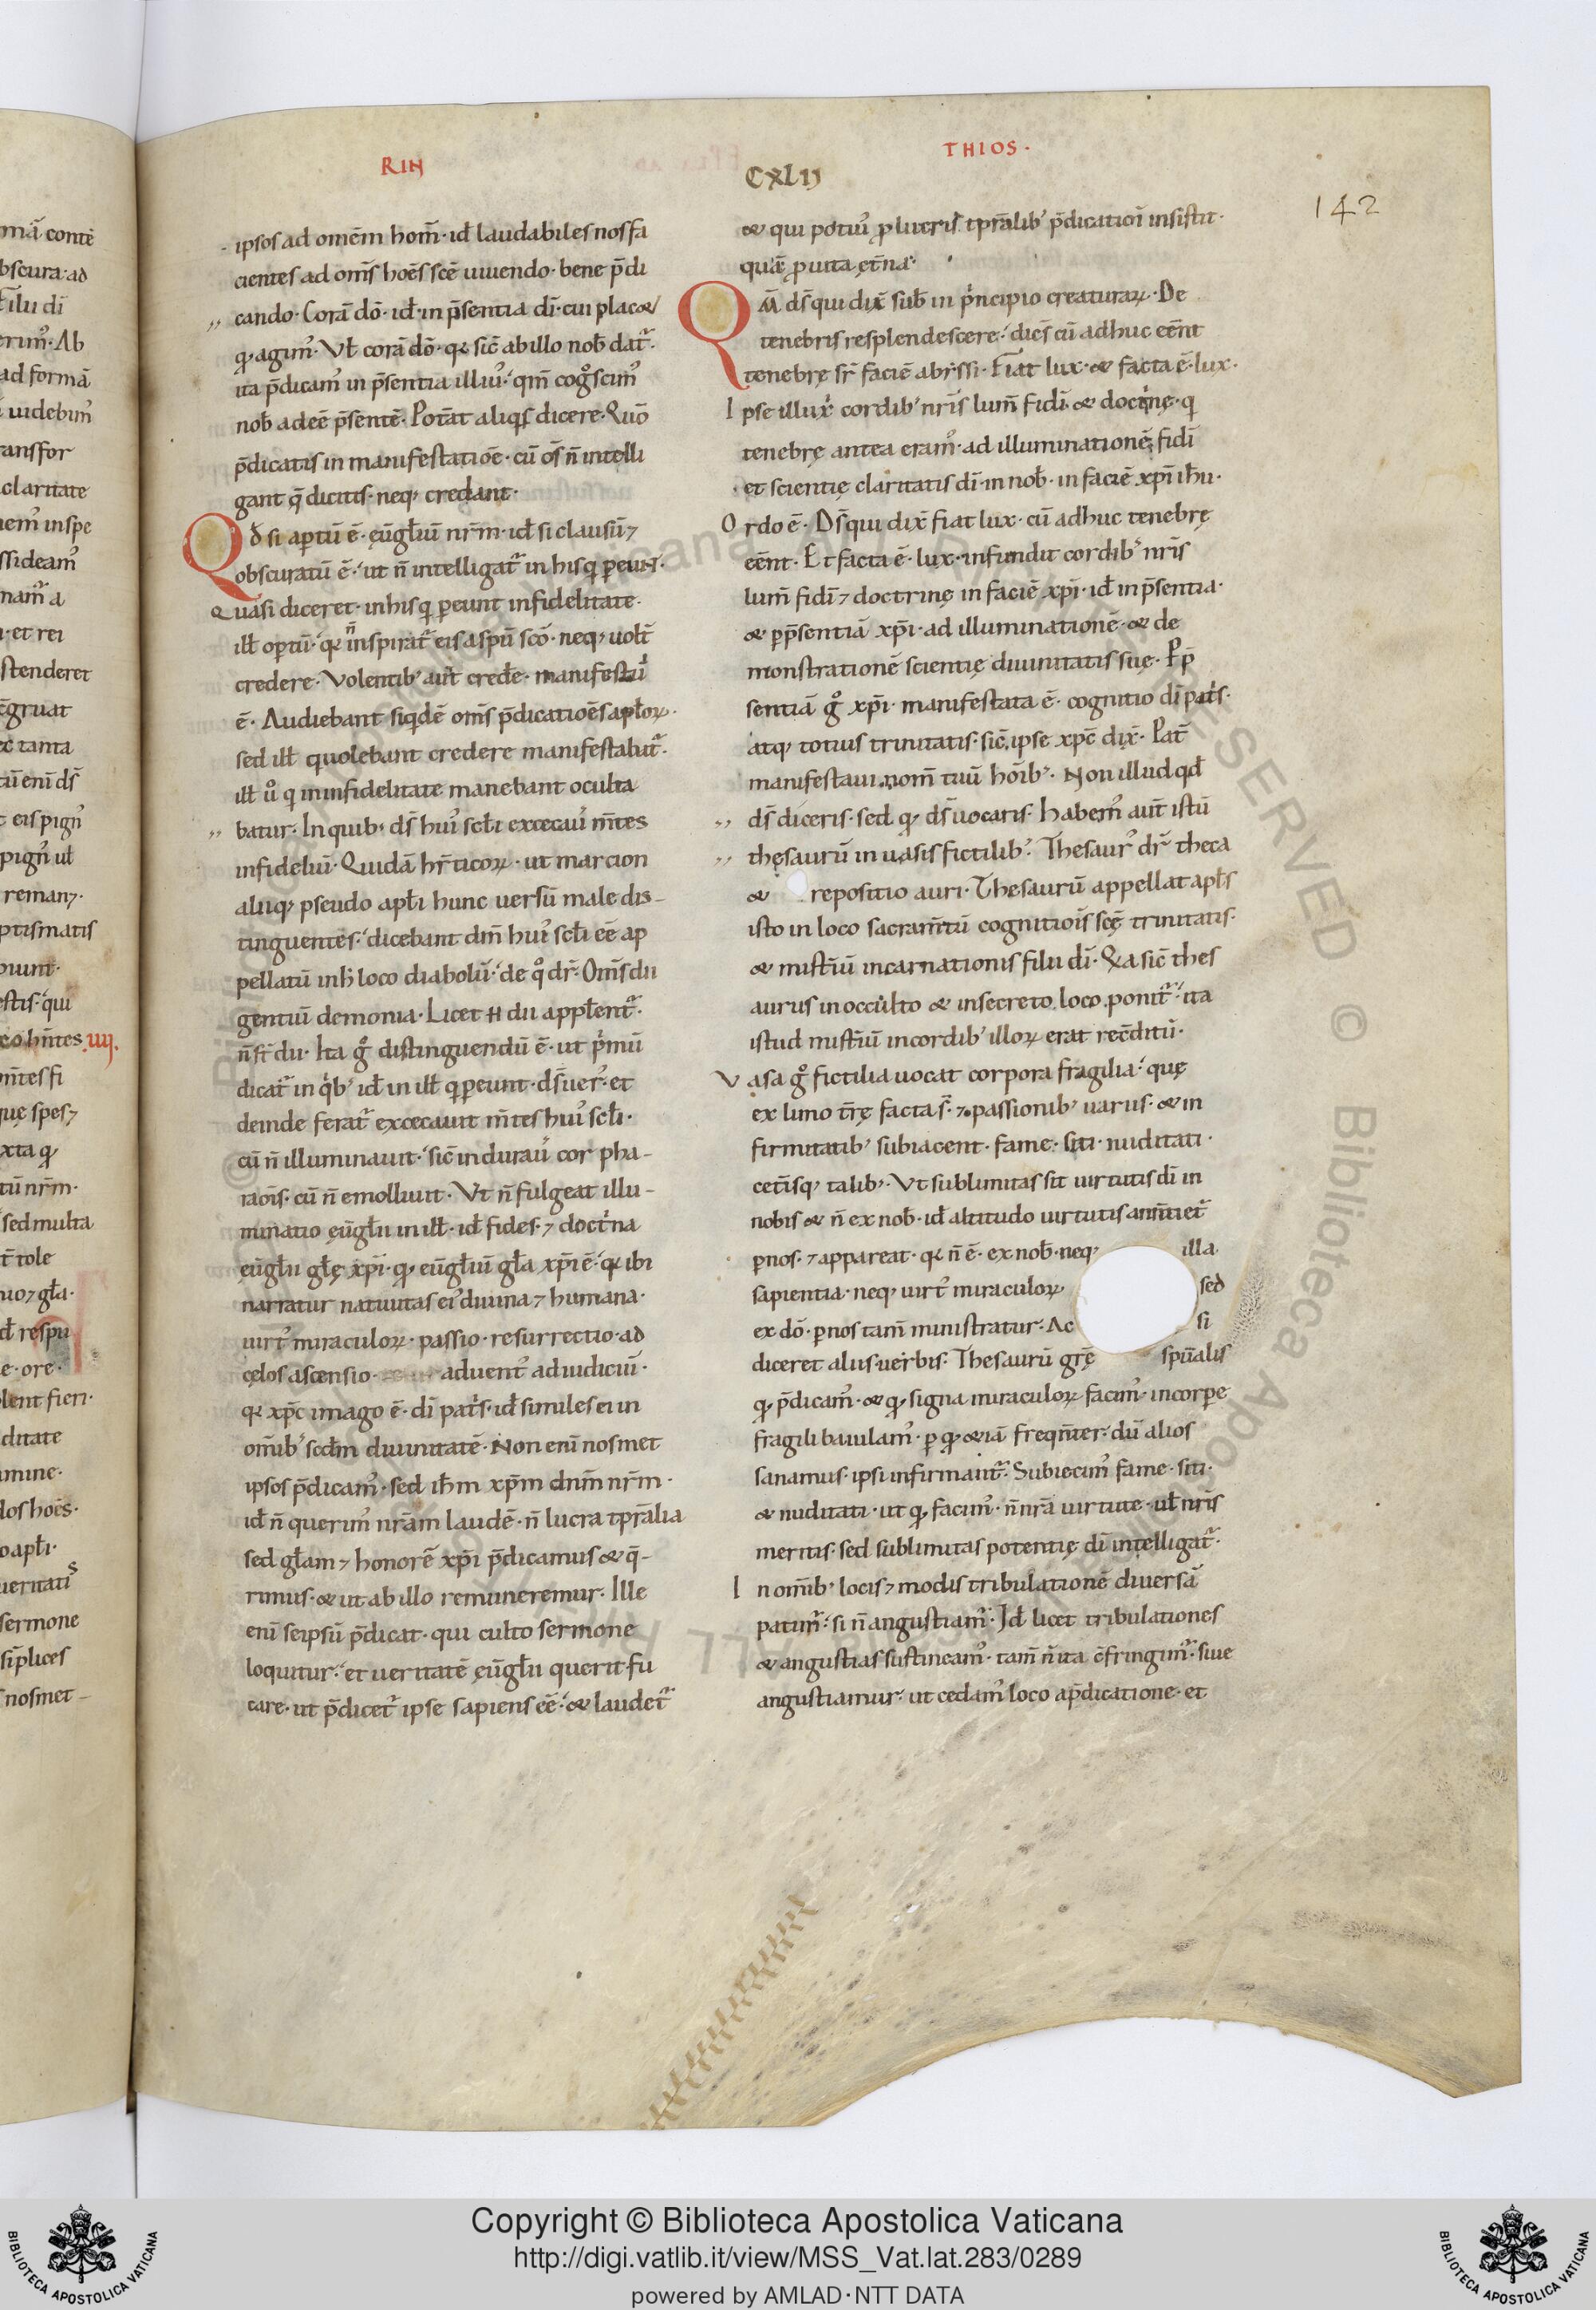 RIN
ipsos ad omēm hom̄· id̄ laudabiles nos fa
cientes ad om̄s hoēs scē uiuendo· bene p̄di
cando· Corā dō· id̄· in p̄sentia dī· cui placet
q, agim᷒· Vl̄ corā dō· qr sic̄ ab illo nob̄ dat᷑·
ita p̄dicam᷒ in p̄sentia illiu᷒· qm̄ cogͦscim᷒
nob̄ adeē p̄sentē· Potāt aliqs dicere· Quō
p̄dicatis in manifestatiōe· cū ōs n̄ intelli
gant q̄ dicitis· neq, credant·
Qd̄ si aptū ē· eūgl̄iū nr̄m· id̄ si clausū ⁊
obscuratū ē· ut n̄ intelligat᷑ in his q peunt·
Quasi diceret· in his q peunt infidelitate·
ill̄ optū· qr n̄ inspirat᷑ eis a spū scō· neq, uol̄t
credere· Volentib᷒ aut̄ cred̄e· manifestū
ē· Audiebant siqdē om̄s p̄dicatioēs apl̄oꝝ·
sed ill̄ qui uolebant credere manifestabat᷑·
ill̄ uͦ q in infidelitate manebant occulta
batur· In quib, ds̄ hui᷒ scl̄i excecaui᷑ m̄tes
infideliū· Quidā hr̄ticoꝝ· ut marcion
aliiq, pseudo apl̄i hunc uersū male dis-
tinguentes· dicebant dm̄ hui᷒ scl̄i eē ap
pellatū in h̄ loco diabolū· de qͦ dr̄· Om̄s dii
gentiū demonia· Licet H dii appl̄ent᷑·
n̄ st̄ dii· Ita gͦ distinguendū ē· ut pͥmū
dicat᷑ in qͥb᷒ id̄ in ill̄ q peunt· ds̄ uer᷒· et
deinde ferat᷑ excecauit m̄tes hui᷒ scl̄i·
cū n̄ illuminauit· sic̄ indurau᷑ cor pha-
raoīs· cū n̄ emolliuit· Vt n̄ fulgeat illu-
minatio eūgl̄ii in ill̄· id̄ fides· ⁊ doctͥna
eūgl̄ii gl̄ę xp̄i· q, eūgl̄iū gl̄a xp̄i ē· qr ibi
narratur natiuitas ei᷒ diuina ⁊ humana·
uirt᷒ miraculoꝝ· passio· resurrectio· ad
cęlos ascensio· aduent᷒ ad iudiciū·
qr xp̄c imago ē· dī patͥs· id̄ similes ei in
om̄ib᷒ scd̄m diuinitatē· Non enī nosmet
ipsos p̄dicam᷒· sed ih̄m xp̄m dnm̄ nr̄m·
id̄ n̄ querim᷒ nr̄am laudē· n̄ lucra tpr̄alia
sed gl̄am ⁊ honorē xp̄i p̄dicamus et q̄-
rimus· et ut ab illo remuneremur· Ille
enī seipsū p̄dicat· qui culto sermone
loquitur· et ueritatē eūgl̄ii querit fu
care· ut p̄dicet᷑ ipse sapiens eē· et laudet᷑
THIOS·
CXLIJ
142
et qui potiu᷒ p lucris tpr̄alib᷒ p̄dicationi insistit·
quā p uita ęt̄na·
QM̄ ds̄ qui dix̄ sub̄ in pͥncipio creaturaꝝ· De
tenebris resplendescere· dies̄ cū adhuc eēnt
tenebrę sr̄ faciē abissi· Fiat lux· et facta ē· lux·
Ipse illux̄ cordib᷒ nr̄is lum̄ fidī· et doctͥnę· q
tenebrę antea eram᷒· ad illuminationē fidī
et scientię claritatis dī· in nob̄· in faciē xp̄i ih̄u·
Ordo ē· Ds̄ qui dix̄ fiat lux· cū adhuc tenebrę
eēnt· Et facta ē· lux· infundit cordib᷒ nr̄is
lum̄ fidī ⁊ doctrinę in faciē xp̄i· id̄ in p̄sentia·
et p p̄sentiā xp̄i· ad illuminationē· et de
monstrationē scientię diuinitatis suę· P p̄
sentiā gͦ xp̄i· manifestata ē· cognitio dī patͥs·
atq, totius trinitatis· sic̄ ipse xp̄c dix̄· Pat̄
manifestaui nom̄ tuū hōib᷒· Non illud qd̄
ds̄ diceris· sed q, ds̄ uocaris· Habem᷒ aut̄ istū
thęsaurū in uasis fictilib᷒· Thesaur᷒ dr̄ theca
et repositio auri· Thesaurū appellat apl̄s
isto in loco sacram̄tū cognitiois̄ scę̄ trinitatis·
et mist̄iū incarnationis filii dī· Qa sic̄ thes
aurus in occulto et in secreto loco ponit᷑· ita
istud mist̄iū in cordib᷒ illoꝝ erat recōditū·
Vasa gͦ fictilia uocat corpora fragilia· quę
ex limo t̄rę facta s̄t· ⁊ passionib᷒ uariis· et in
firmitatib᷒ subiacent· fame· siti· nuditati·
cet̄isq, talib᷒· Vt sublimitas sit uirtutis dī in
nobis et n̄ ex nob̄· id̄ altitudo uirtutis ann̄tiet᷑
p nos· ⁊ appareat· qr n̄ ē· ex nob̄· neq, illa
sapientia· neq, uirt᷒ miraculoꝝ sed
ex dō· p nos tam̄ ministratur· Ac si
diceret aliis uerbis· Thesaurū grę̄ spūalis
q, p̄dicam᷒· et q, signa miraculoꝝ facim᷒· in corpe
fragili baiulam᷒· p q, etiā freqn̄ter· dū alios
sanamus· ipsi infirmam̄r· Subiecim᷒ fame· siti·
et nuditati· ut q, facim᷒· n̄ nr̄a uirtute· ul̄ nr̄is
meritis· sed sublimitas potentię dī intelligat᷑·
In om̄ib᷒ locis ⁊ modis tribulationē diuersā
patim᷑· si n̄ angustiam᷑· Id̄ licet tribulationes
et angustias sustineam᷒· tam̄ n̄ ita c̄fringim᷑· siue
angustiamur· ut cedam᷒ loco a p̄dicatione· et
Copyright © Biblioteca Apostolica Vaticana
http://digi.vatlib.it/view/MSS_Vat.lat.283/0289
powered by AMLAD·NTT DATA